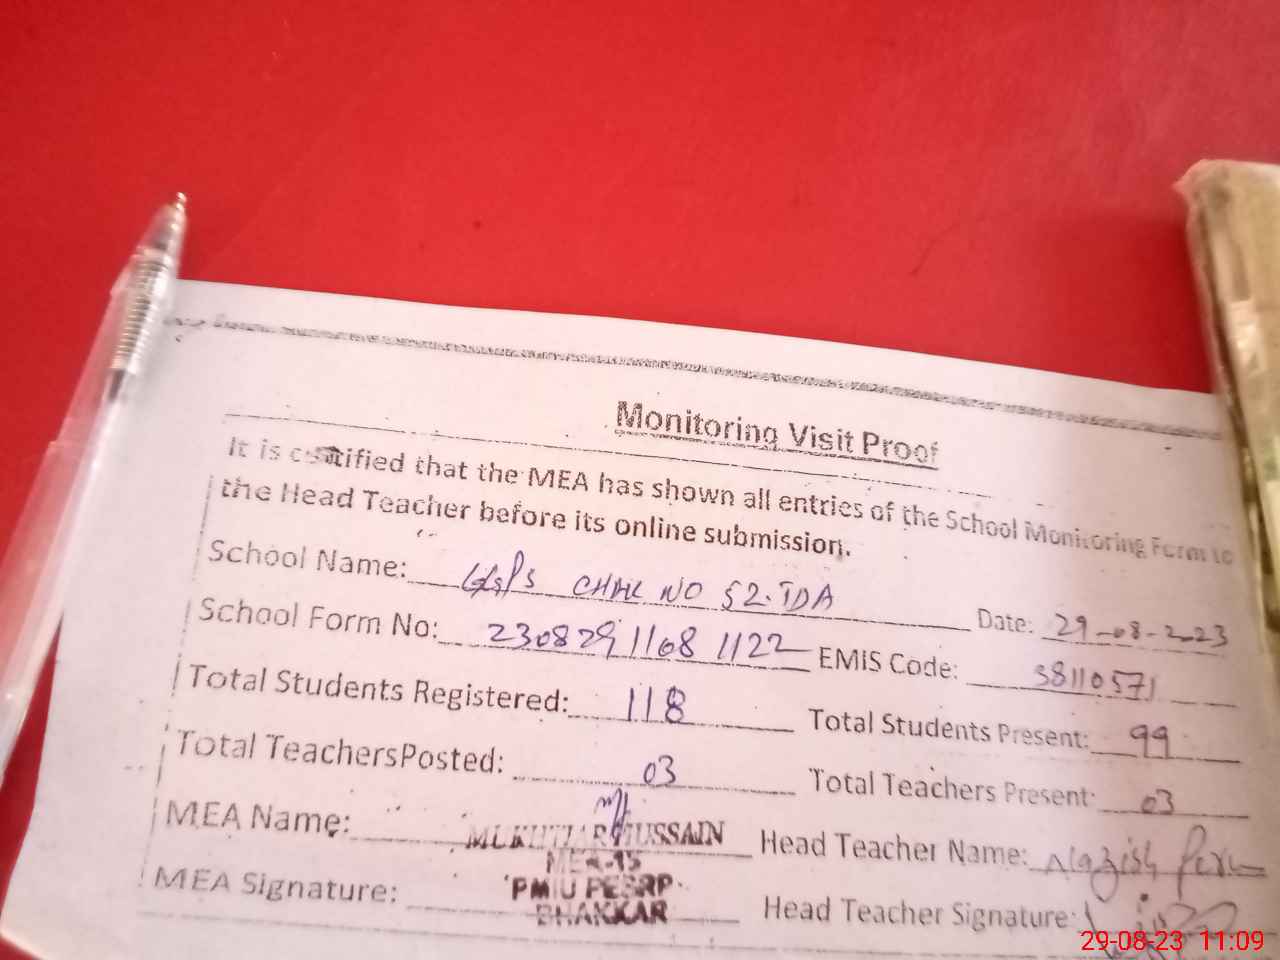 Monitoring Visit Proof
It is certified that the MEA has shown all entries of the School Monitoring Form to
the Head Teacher before its online submission.
School Name: GGPS CHAK NO 52.TDA Date: 29-08-2023
School Form No: 230829 1168 1122 EMIS Code: 38110571
Total Students Registered: 118 Total Students Present: 99
Total TeachersPosted: 03 Total Teachers Present: 03
MEA Name: MUKHTIAR HUSSAIN Head Teacher Name: Nazish
MEA-15
MEA Signature: PMIU PESRP Head Teacher Signature:
BHAKKAR
29-08-23 11:09